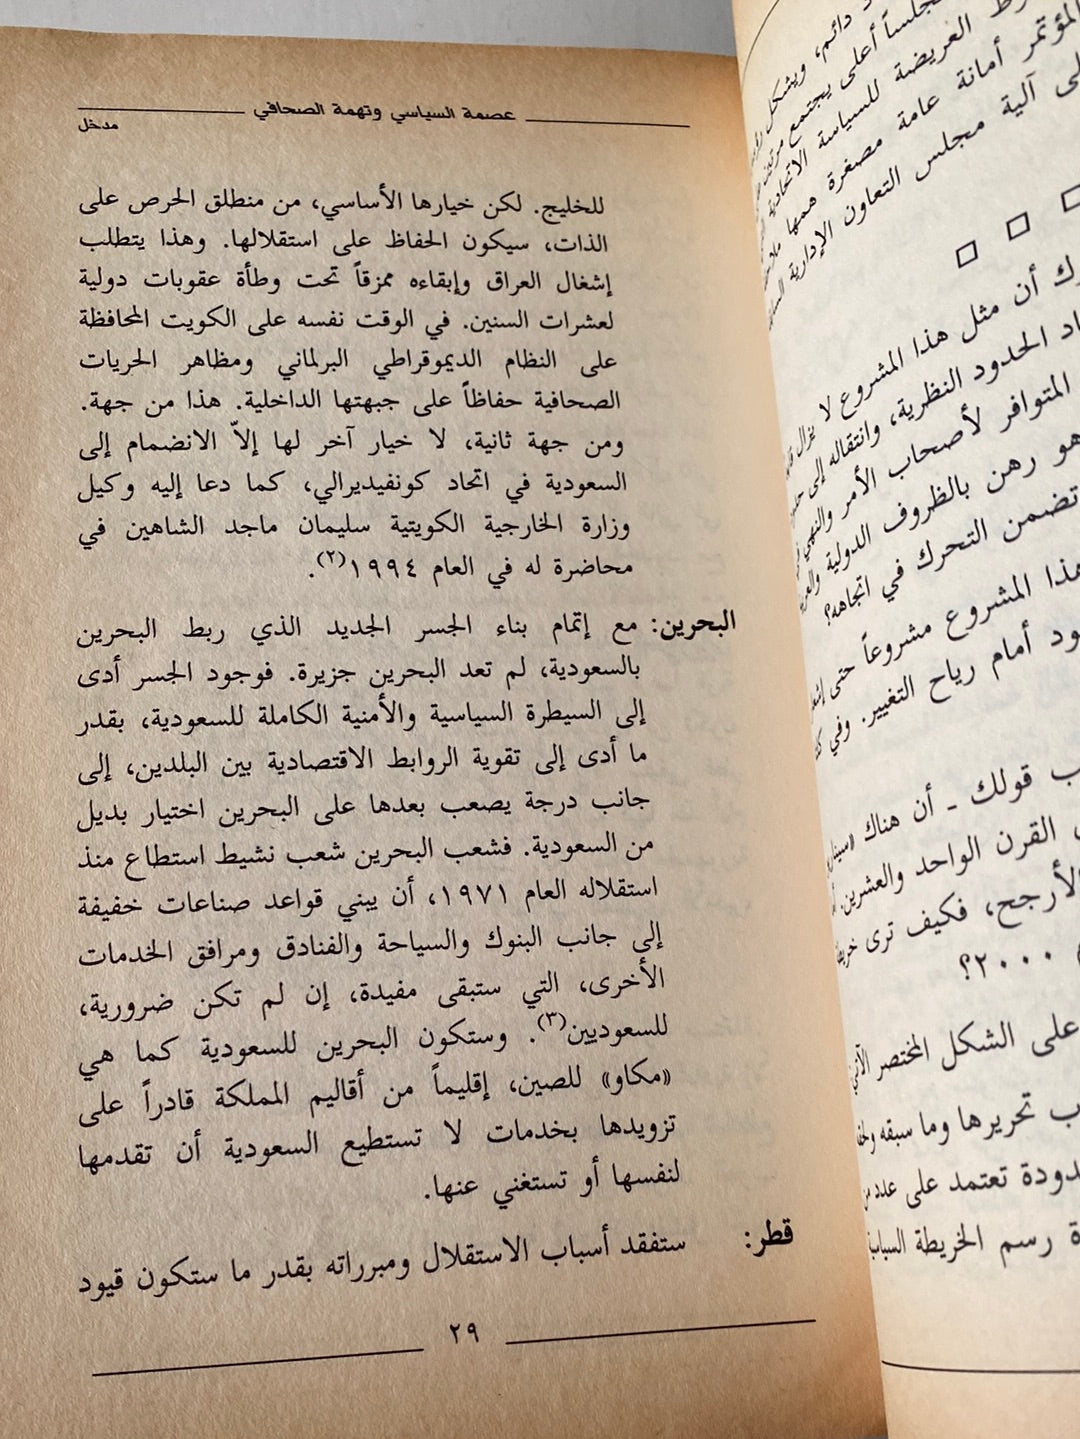 عصمة السياسي وتهمة الصحافي
مدخل
للخليج. لكن خيارها الأساسي، من منطلق الحرص على
الذات، سيكون الحفاظ على استقلالها. وهذا يتطلب
إشغال العراق وإبقاءه ممزقاً تحت وطأة عقوبات دولية
لعشرات السنين. في الوقت نفسه على الكويت المحافظة
على النظام الديموقراطي البرلماني ومظاهر الحريات
الصحافية حفاظاً على جبهتها الداخلية. هذا من جهة.
ومن جهة ثانية، لا خيار آخر لها إلاّ الانضمام إلى
السعودية في اتحاد كونفيديرالي، كما دعا إليه وكيل
وزارة الخارجية الكويتية سليمان ماجد الشاهين في
محاضرة له في العام ١٩٩٤(٢).
البحرين: مع إتمام بناء الجسر الجديد الذي ربط البحرين
بالسعودية، لم تعد البحرين جزيرة. فوجود الجسر أدى
إلى السيطرة السياسية والأمنية الكاملة للسعودية، بقدر
ما أدى إلى تقوية الروابط الاقتصادية بين البلدين، إلى
جانب درجة يصعب بعدها على البحرين اختيار بديل
من السعودية. فشعب البحرين شعب نشيط استطاع منذ
استقلاله العام ١٩٧١، أن يبني قواعد صناعات خفيفة
إلى جانب البنوك والسياحة والفنادق ومرافق الخدمات
الأخرى، التي ستبقى مفيدة، إن لم تكن ضرورية،
للسعوديين(٣). وستكون البحرين للسعودية كما هي
«مكاو» للصين، إقليماً من أقاليم المملكة قادراً على
تزويدها بخدمات لا تستطيع السعودية أن تقدمها
لنفسها أو تستغني عنها.
قطر: ستفقد أسباب الاستقلال ومبرراته بقدر ما ستكون قيود
٢٩
دائم، ويشكل
أعلى يجتمع
العريضة للسياسة الاتحادية
المؤتمر أمانة عامة مصغرة همها
آلية مجلس التعاون الإدارية
أن مثل هذا المشروع لا
الحدود النظرية، وانتقاله إلى
المتوافر لأصحاب الأمر والنهي
هو رهن بالظروف الدولية
تضمن التحرك في اتجاهه؟
هذا المشروع مشروعاً حتى
أمام رياح التغيير. وفي
قولك - أن هناك
القرن الواحد والعشرين.
الأرجح، فكيف ترى
٢٠٠٠؟
على الشكل المختصر الآتي
تحريرها وما سبقه
تعتمد على عدد
رسم الخريطة السياسية